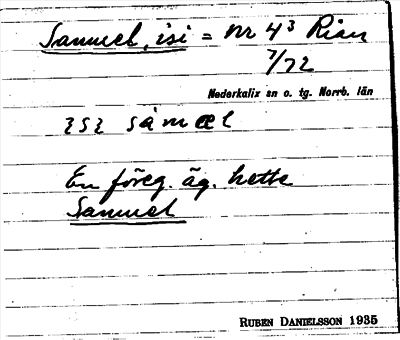 Samuel, isi = nr 4³ Rian
7/72
Nederkalix sn o. tg. Norrb. län
sámæl
En föreg. äg. hette
Samuel
RUBEN DANIELSSON 1935